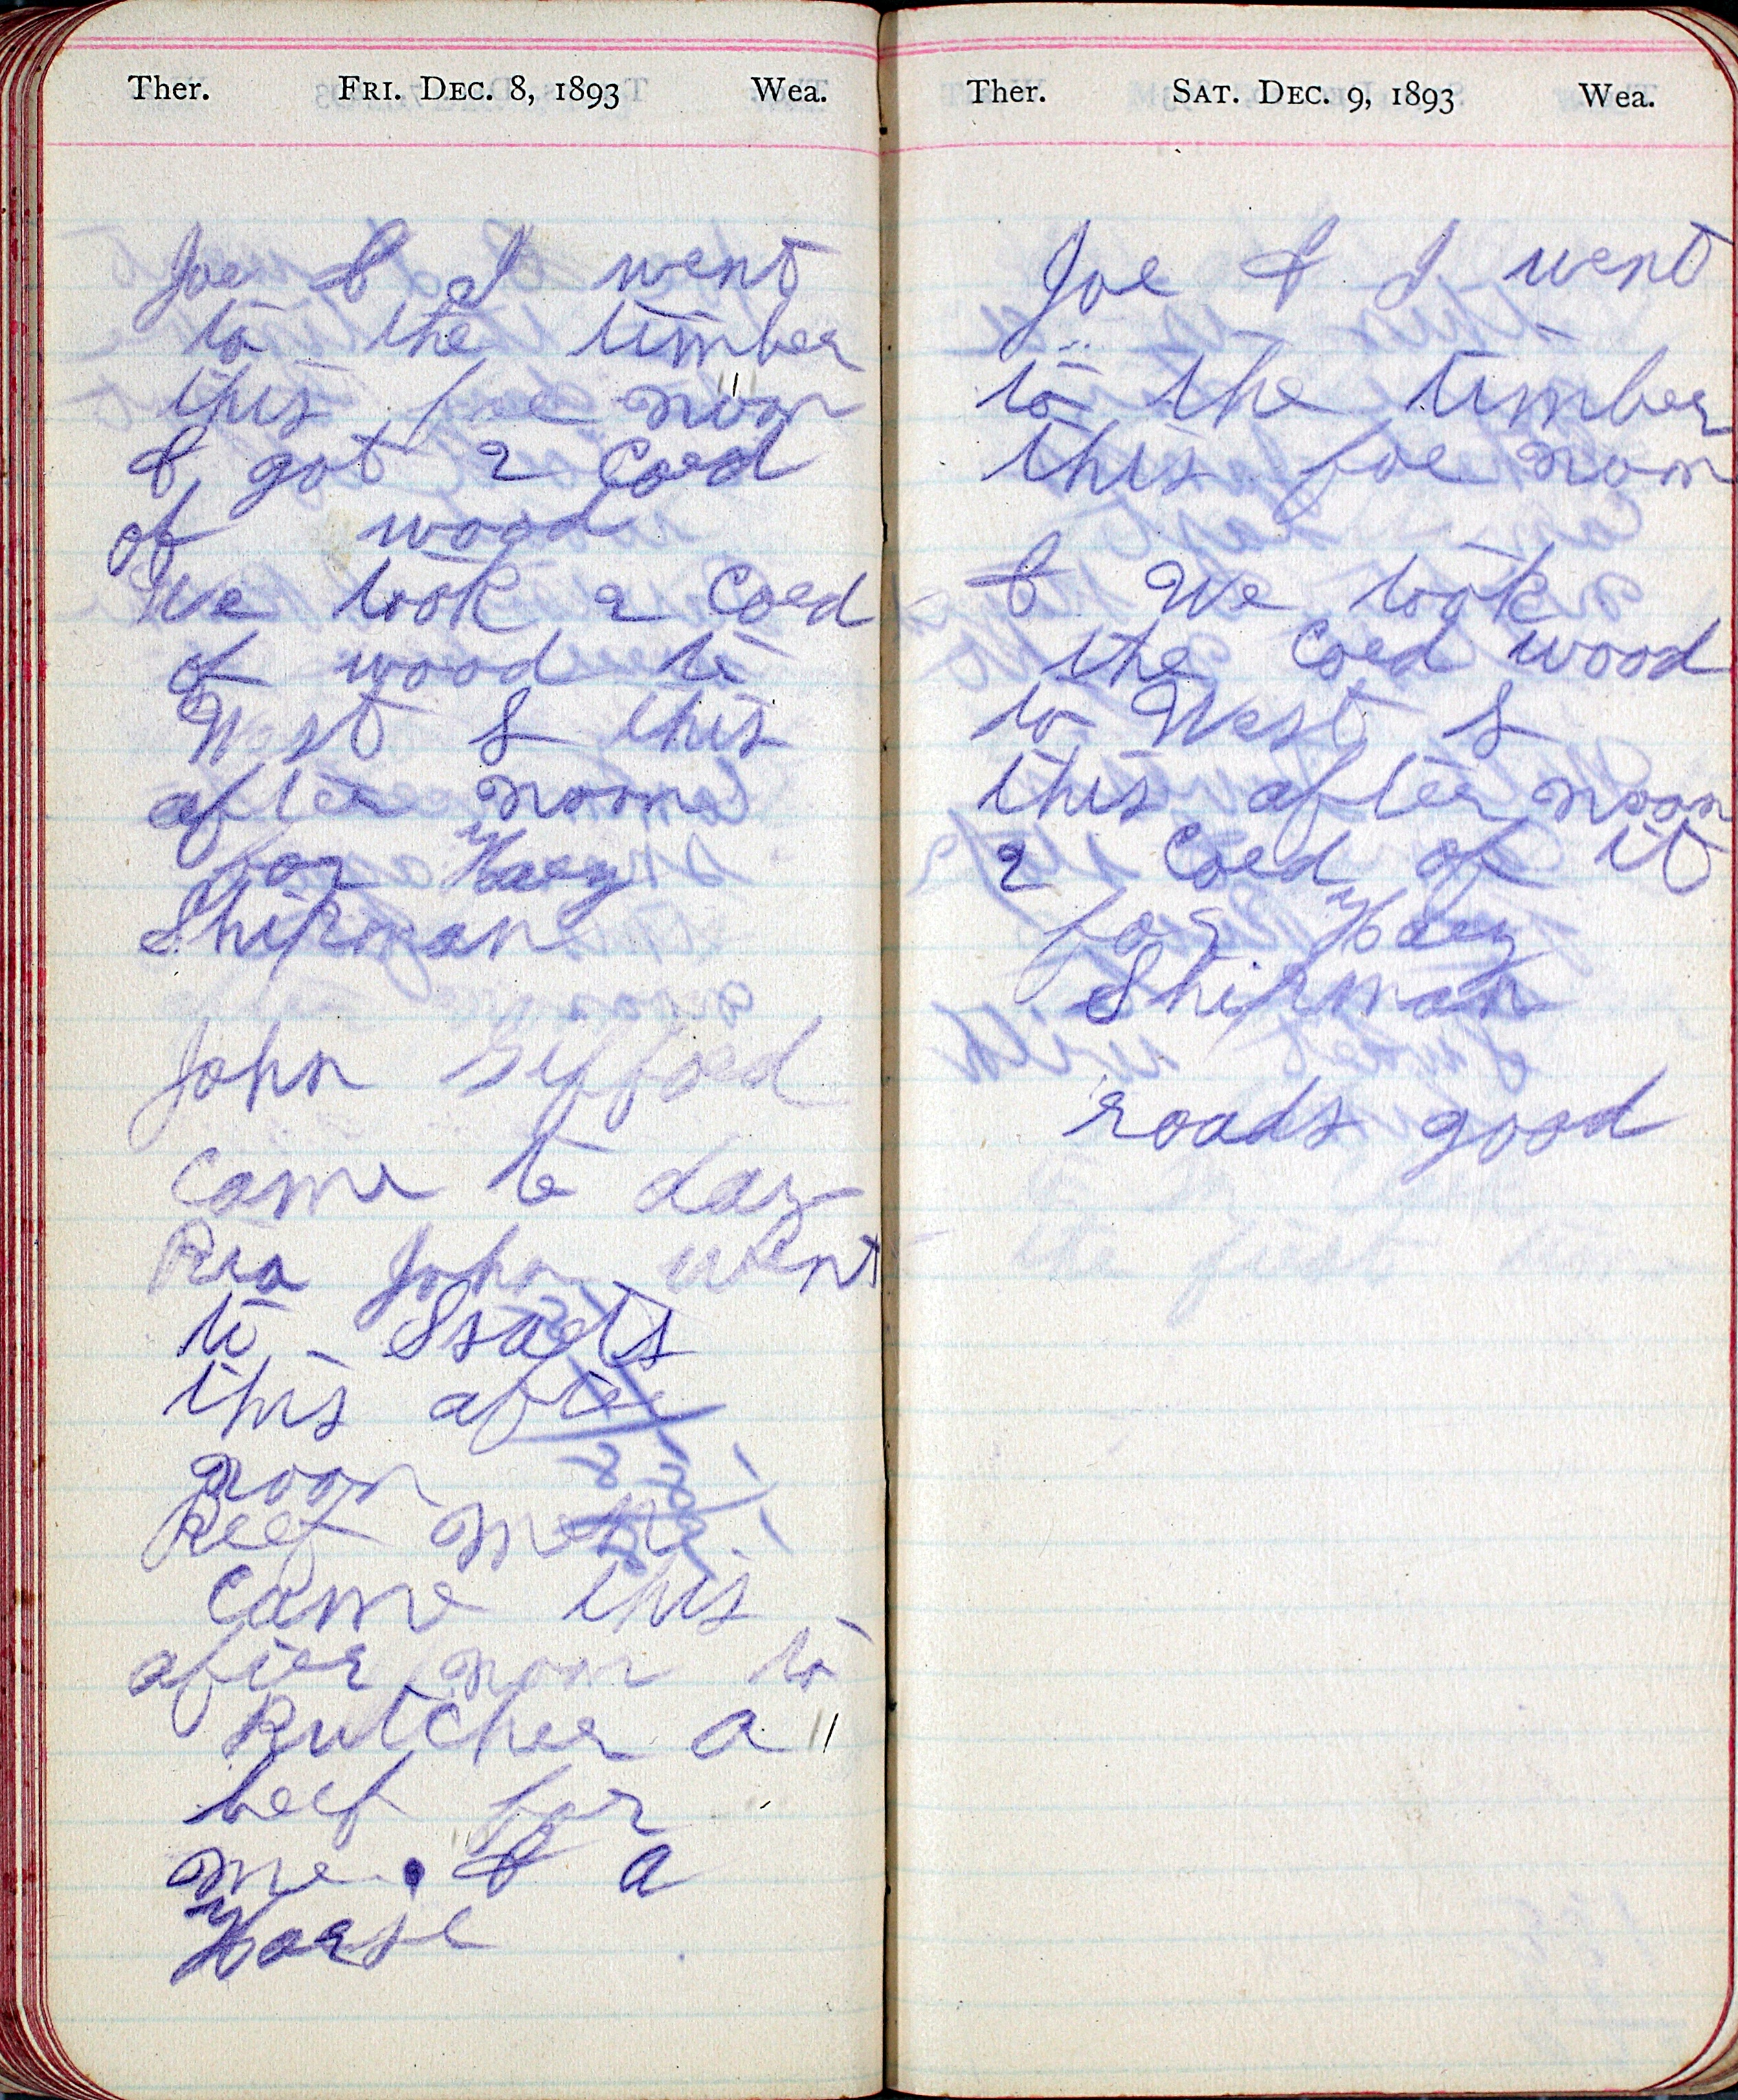 Ther. FRI. DEC. 8, 1893 Wea.
Joe & I went
to the timber
this foe noon
& got 2 Cord
of wood
We took 2 Cord
of wood to
West & this
after noon
for Harry
Shipman
John Gifford
Came to day
John went
to
this after
noon
Beef men
Came this
after noon to
Butcher a
beef for
me. & a
Horse
Ther. SAT. DEC. 9, 1893 Wea.
Joe & I went
to the timber
this foe noon
& We took
the Cord wood
to West &
this after noon
2 Cord of it
for Harry
Shipman
roads good